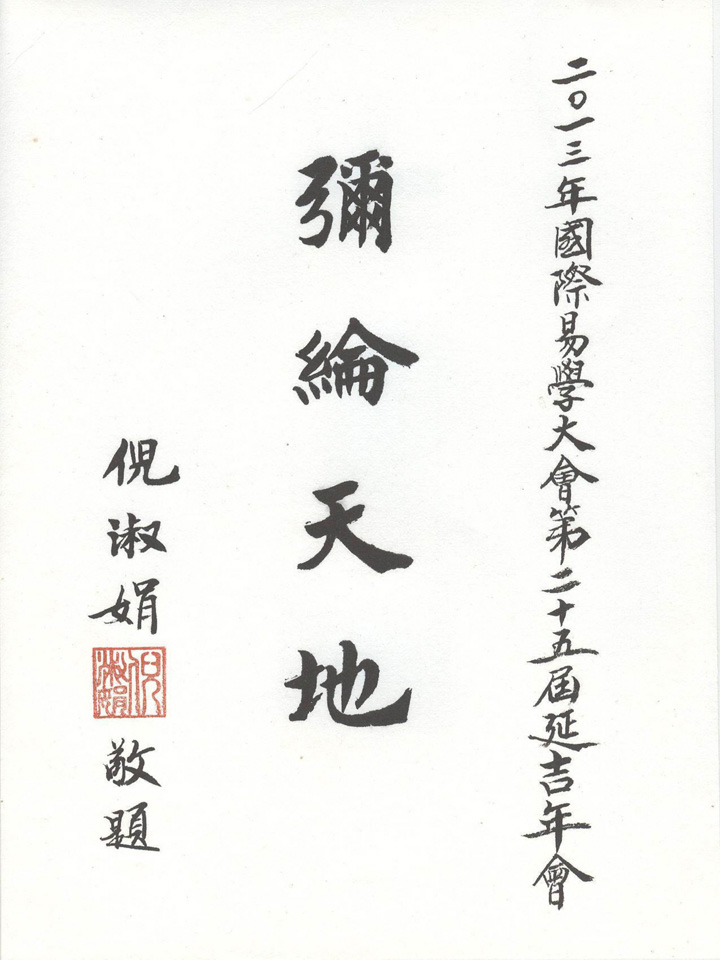 二〇一三年國際易學大會第二十五屆延吉年會
彌綸天地
倪淑娟
倪淑娟
敬題